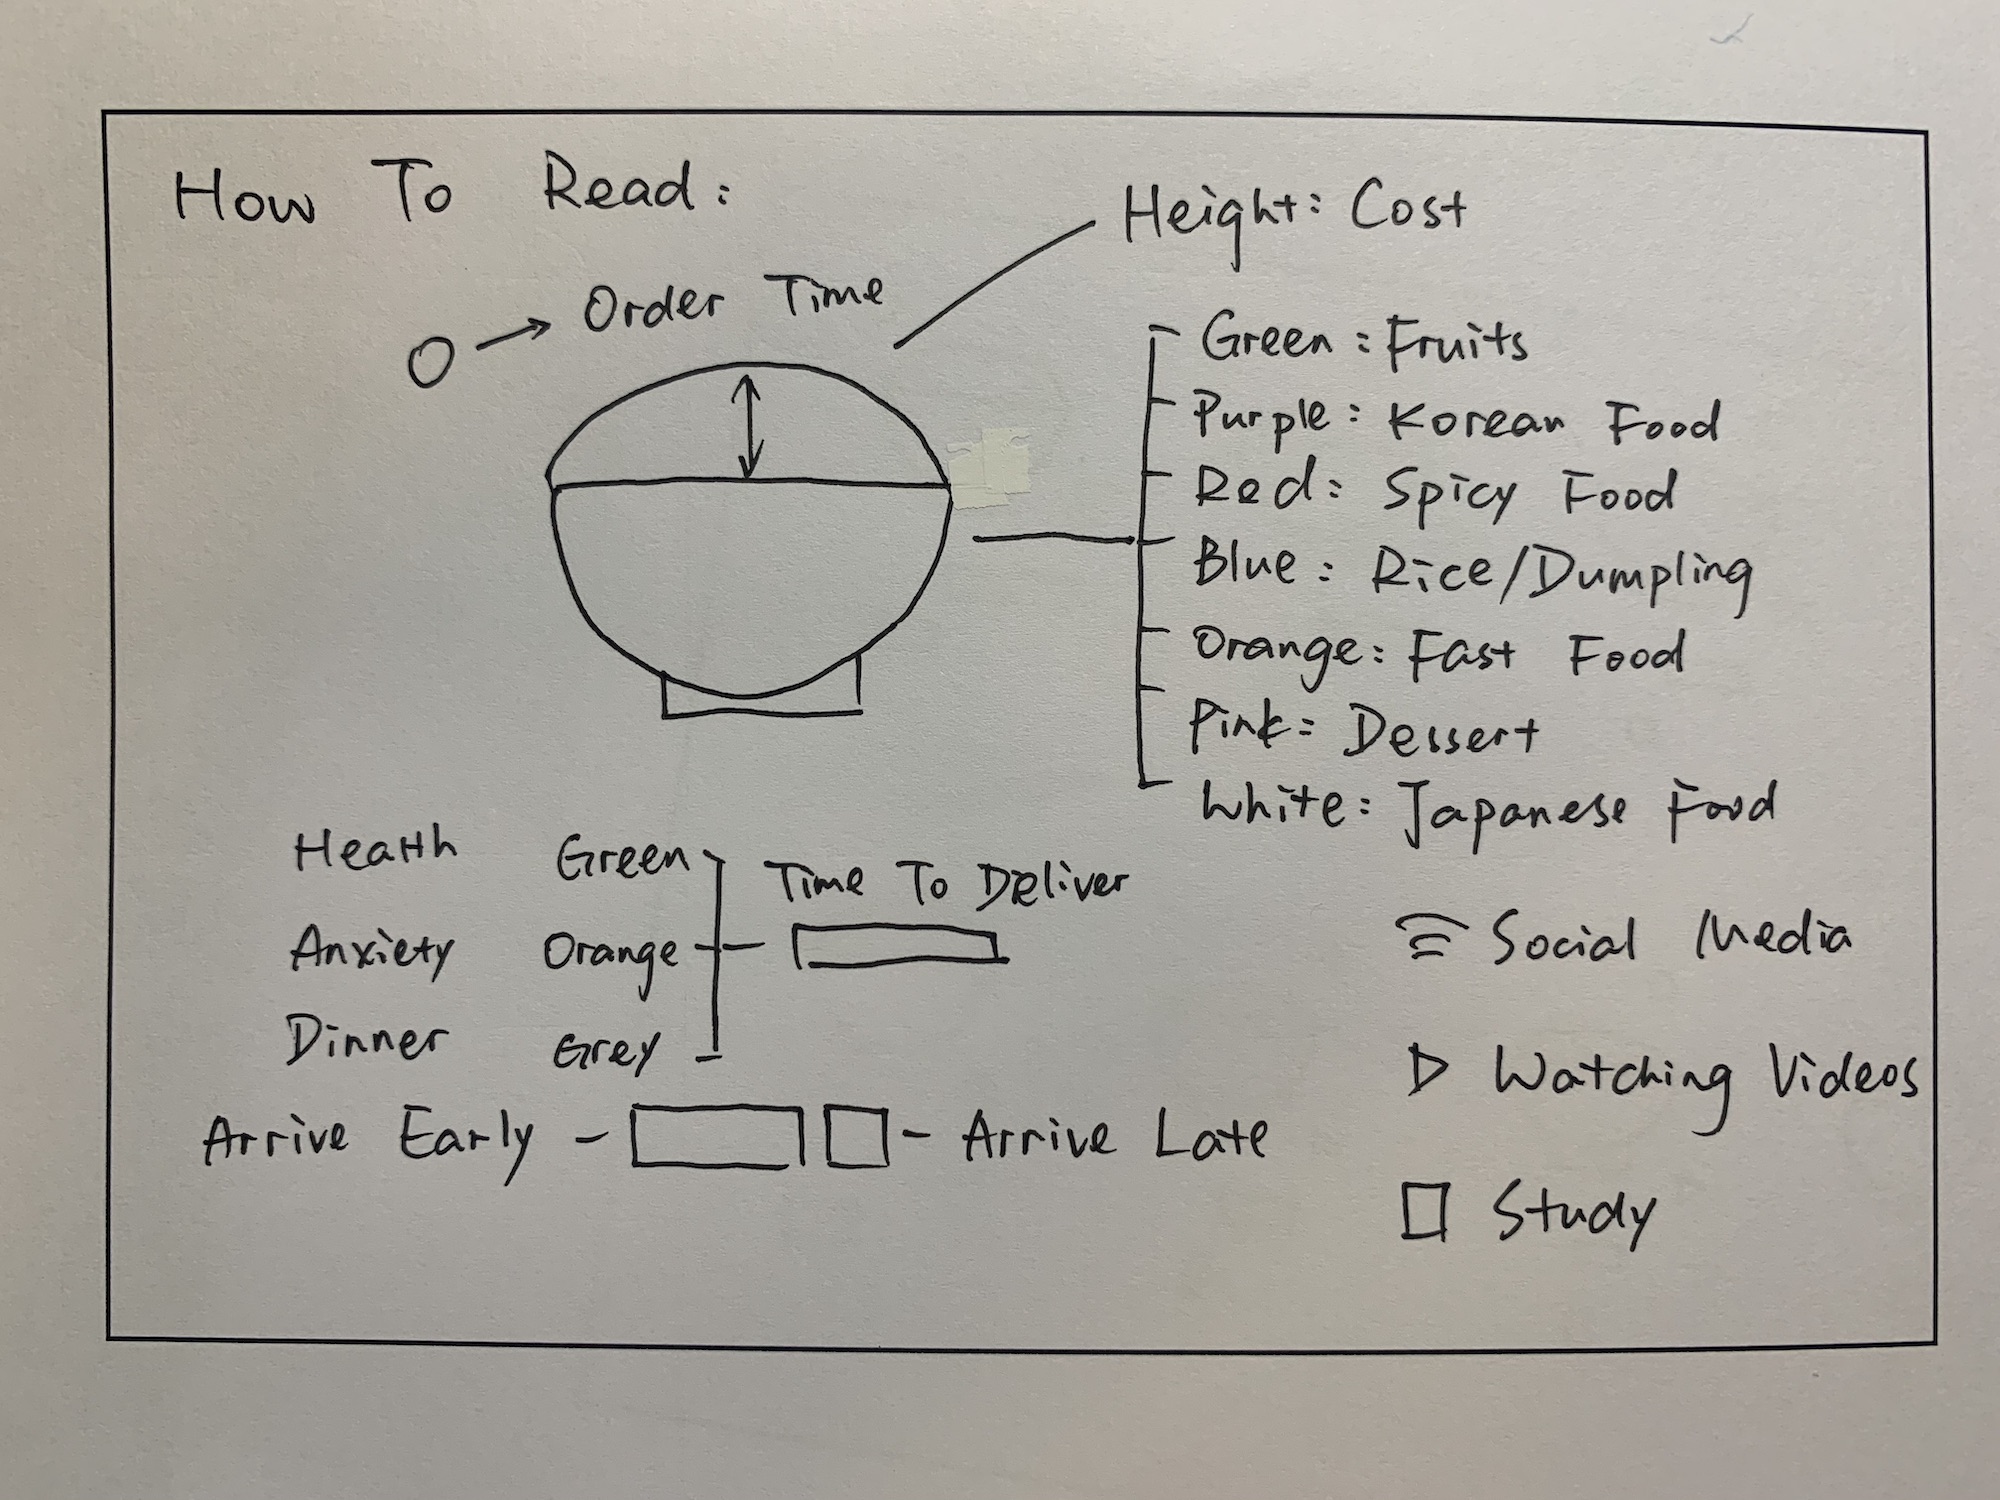 How To Read:
Height: Cost
Order Time
Green: Fruits
Purple: Korean Food
Red: Spicy Food
Blue: Rice/Dumpling
Orange: Fast Food
Pink: Dessert
White: Japanese Food
Health Green
Time To Deliver
Anxiety Orange
Dinner Grey
Arrive Early - - Arrive Late
Social Media
Watching Videos
Study